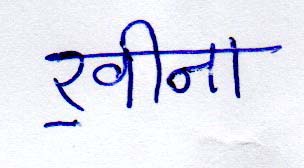 रवीना